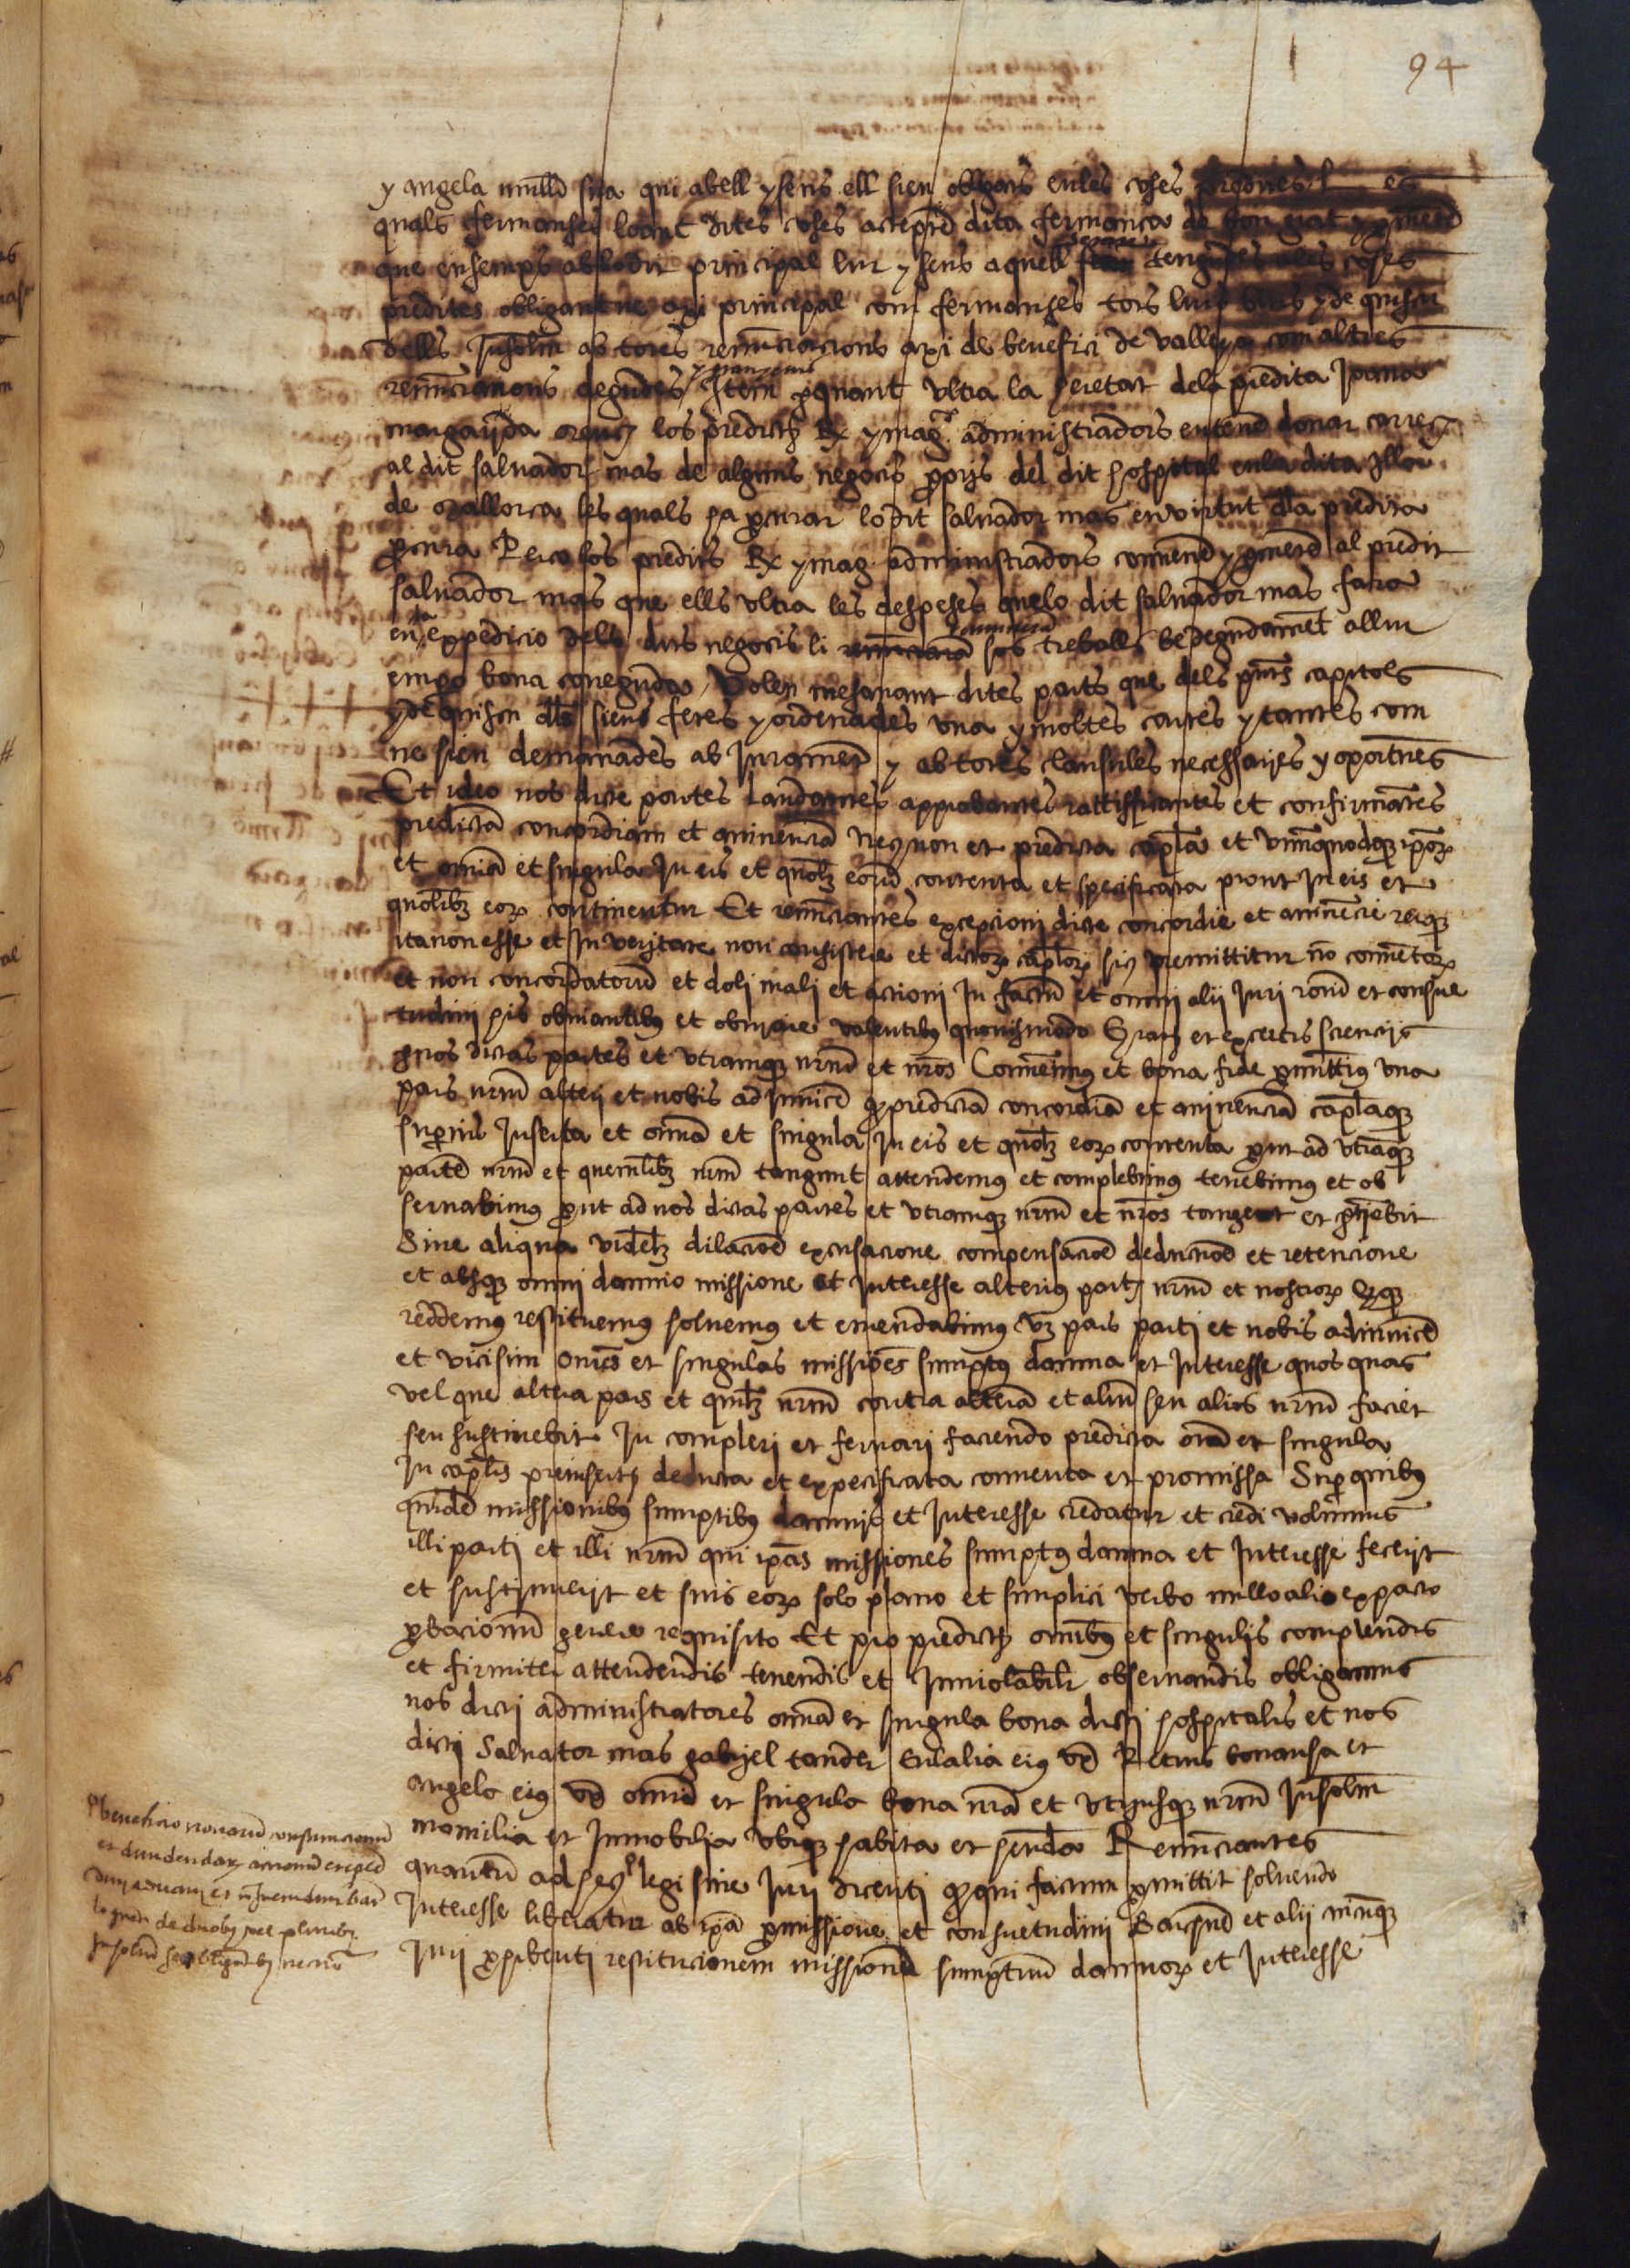 94
y angela muller sua qui ab ell y sens ell sien obligats en les coses
quals fermanses loant dites coses acceptant dita fermança de bon grat y prometen
que ensemps ab lo dit principal lur y sens aquell tenguts a les coses
predites obligantne axi principal com fermanses tots lurs bens y de quiscu
dells insolidum ab totes renunciacions axi de benefici de valleya com altres
renunciacions degudes Item per quant ultra la heretat de la predita Joana
margarida los predicts Rx y mag administradors entenen donar carrech
al dit saluador mas de alguns negocis propis del dit hospital en la dita illa
de mallorca les quals ha procurar lo dit saluador mas en virtut dla predita
procura Perço los predits Rx y mag administradors convenen y prometen al predit
saluador mas que ells ultra les despeses que lo dit saluador mas fara
en la expedicio dels dits negocis li sos treballs be degudament a llur
empero bona coneguda Volen mesavant dites parts que dels presents capitols
y de quiscu dells sien fetes y ordenades una y moltes cartes y tantes com
ne sien demanades ab jurament y ab totes clausules necessaries y oportunes
Et ideo nos dicte partes laudantes approbantes rattifficantes et confirmantes
predictam concordiam et avinenciam necnon et predicta capitula et unumquodque ipsorum
et omnia et singula in eis et quolibet eorum contenta et specificata prout in eis et
quolibet eorum continentur Et renunciantes excepcioni dicte concordie et avinencie reique
ita non esse et in veritate non consistere et dictorum capitulorum sic premittitur non conventorum
et non concordatorum et doli mali et actioni in factum et omni alii juri rationi et consue
tudini his obviantibus et obviare valentibus quovismodo Gratis et ex certis scienciis
nos dictas partes et utramque nostrum et nostros Convenimus et bona fide promittimus una
pars nostrum alteri et nobis ad invicem quod predictam concordiam et avinenciam capitulaque
superius inserta et omnia et singula in eis et quolibet eorum contenta prout ad utramque
partem nostrum et quemlibet nostrum tangunt attendemus et complebimus tenebimus et ob
servabimus prout ad nos dictas partes et utramque nostrum et nostros tanget et pertinebit
Sine aliqua videlicet dilacione excusacione compensacione deduccione et retencione
et absque omni damno missione et interesse alterius partis nostrum et nostrorum
reddemus restituemus solvemus et emendabimus pars parti et nobis adinvicem
et vicisim omnes et singulas missiones sumptus damna et interesse quos quas
vel que altera pars et quilibet nostrum contra alteram et alium seu alios nostrum faciet
seu sustinebit In compleri et servari faciendo predicta omnia et singula
In capitulis preinsertis deducta et expecificata conventa et promissa Super quibus
quidem missionibus sumptibus damnis et interesse credatur et credi volumus
illi parti et illi nostrum qui ipsas missiones sumptus damna et interesse fecerit
et sustinuerit et suis eorum solo plano et simplici verbo nullo alio expacto
probacionum genere requisito Et pro predictis omnibus et singulis complendis
et firmiter attendendis tenendis et inviolabiliter observandis obligamus
nos dicti administratores omnia et singula bona dicti hospitalis et nos
dicti Salvator mas gabriel tander Eulalia eius uxor Petrus bonansa et
angela eius uxor omnia et singula bona nostra et utriusque nostrum insolidum
mobilia et inmobilia ubique habita et habenda Renunciantes
quantum ad hec legi sive juri dicenti quod qui factum promittit solvendo
Interesse liberatur ab ipsa promissione et consuetudini Barchinone et alii
juri prohibenti restitucionem missionum sumptuum damnorum et interesse
beneficio novarum constitucionum
et dividendarum accionum et
divi adriani et
de duobus vel pluribus
insolidum se obligantibus necnon